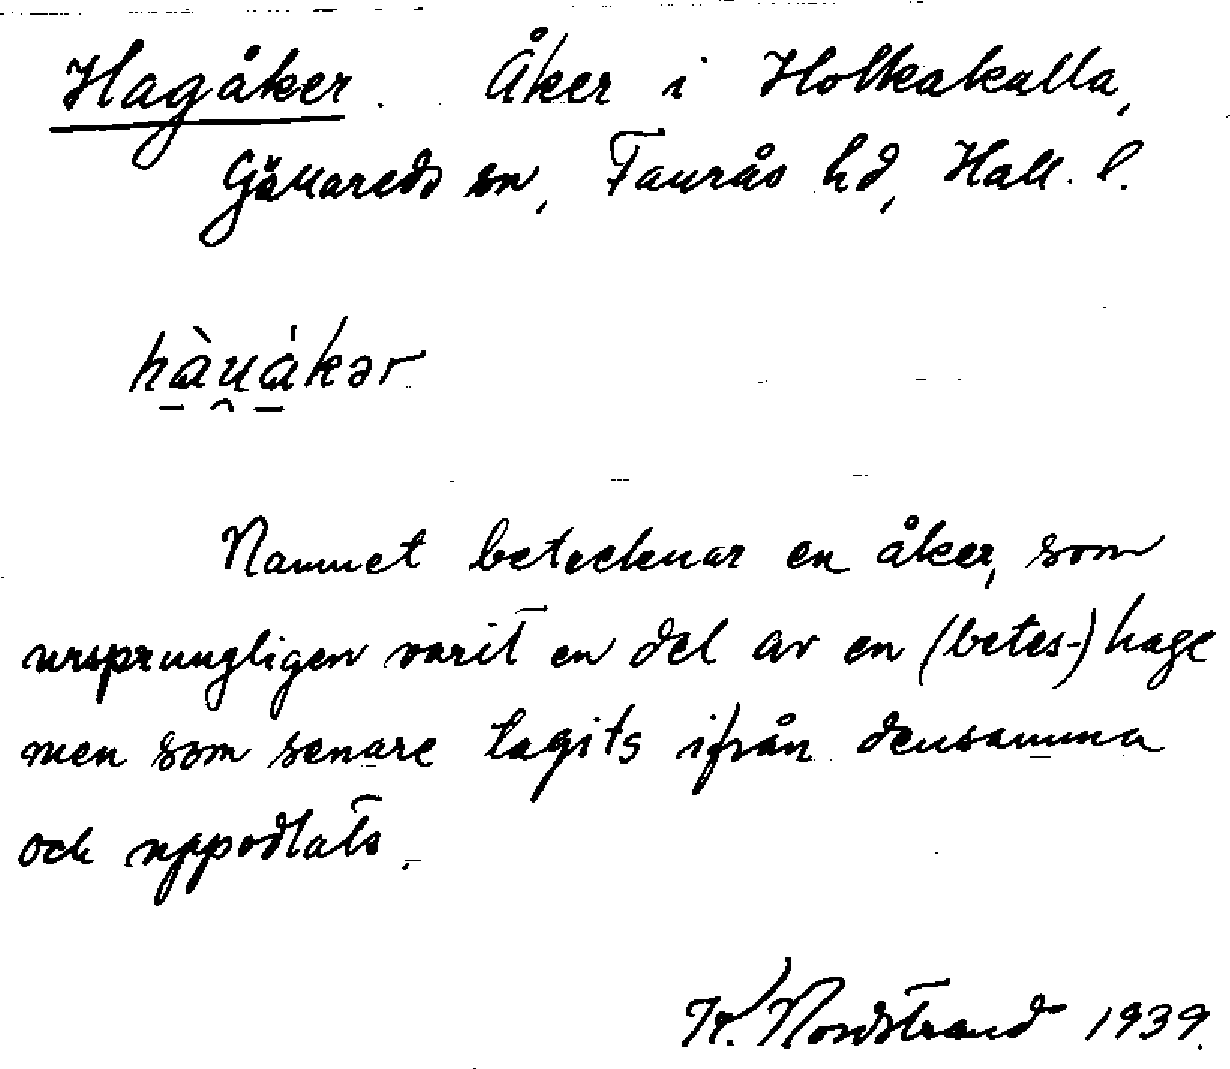 Hagåker. Åker i Holkakulla,
Gällareds sn, Faurås hd, Hall. l.
hàu̯ákər
Namnet betecknar en åker, som
ursprungligen varit en del av en (betes-)hage
men som senare tagits ifrån densamma
och uppodlats.
Nordstrand 1939.